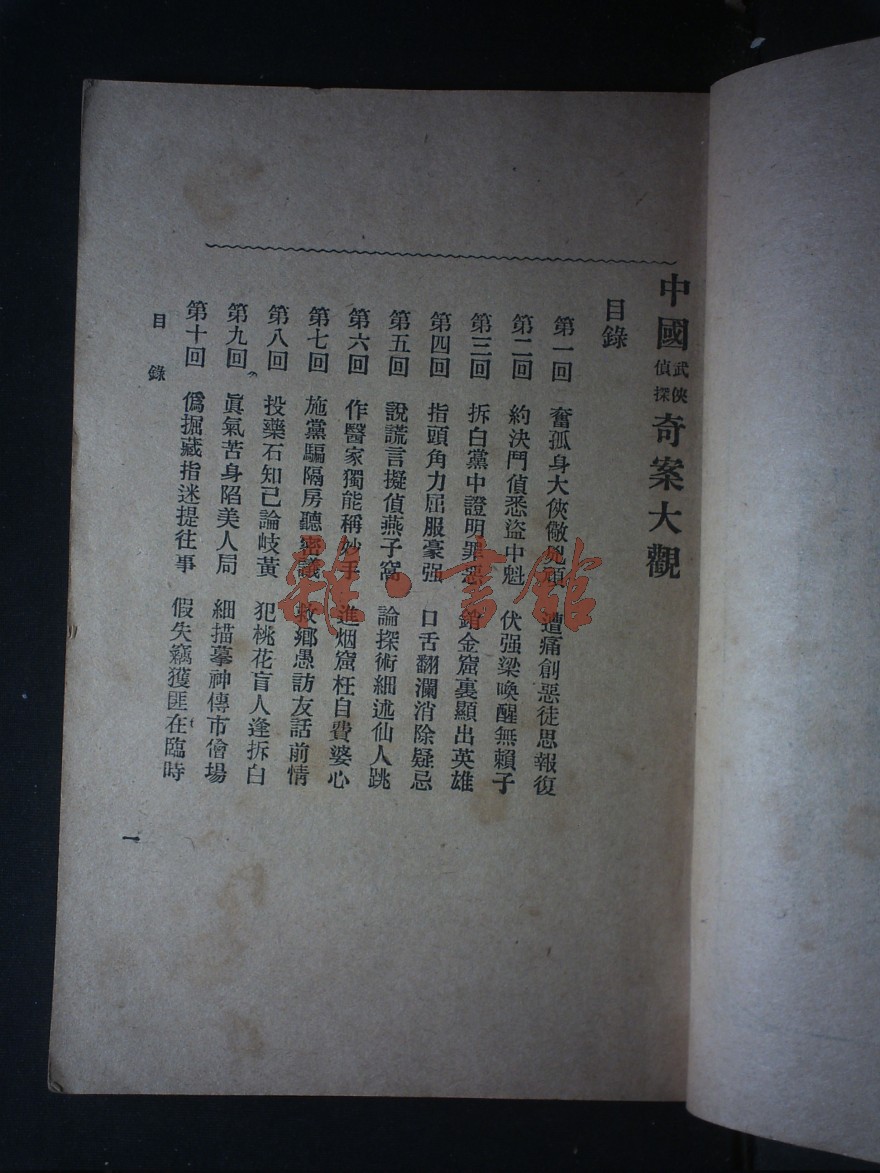 中國武俠偵探奇案大觀
目錄
第一回 奮孤身大俠儆兇頑 遭痛創惡徒思報復
第二回 約決鬥偵悉盜中魁 伏强梁喚醒無賴子
第三回 拆白黨中證明罪惡 銷金窟裏顯出英雄
第四回 指頭角力屈服豪强 口舌翻瀾消除疑忌
第五回 說謊言擬偵燕子窩 論探術細述仙人跳
第六回 作醫家獨能稱妙手 進烟窟枉自費婆心
第七回 施黨騙隔房聽密議 救鄉愚訪友話前情
第八回 投藥石知已論岐黃 犯桃花盲人逢拆白
第九回 眞氣苦身陷美人局 細描摹神傳市儈場
第十回 僞掘藏指迷提往事 假失竊獲匪在臨時
目錄
一
雜·書館